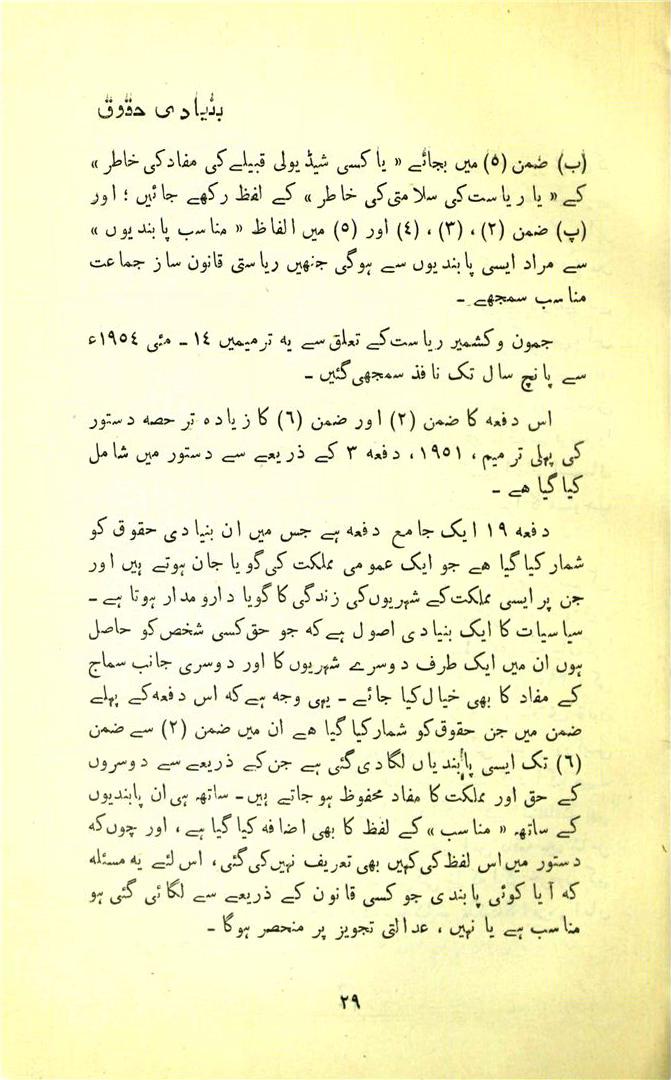 بنیادی حقوق
(ب) ضمن (٥) میں بجائے « یا کسی شیڈیولی قبیلے کی مفاد کی خاطر »
کے « یا ریاست کی سلامتی کی خاطر » کے لفظ رکھے جائیں ؛ اور
(پ) ضمن (٢) ، (٣) ، (٤) اور (٥) میں الفاظ « مناسب پابندیوں »
سے مراد ایسی پابندیوں سے ہوگی جنھیں ریاستی قانون ساز جماعت
مناسب سمجھے ۔
جموں و کشمیر ریاست کے تعلق سے یہ ترمیمیں ١٤ ۔ مئی ١٩٥٤ء
سے پانچ سال تک نافذ سمجھی گئیں ۔
اس دفعہ کا ضمن (٢) اور ضمن (٦) کا زیادہ تر حصہ دستور
کی پہلی ترمیم ، ١٩٥١، دفعہ ٣ کے ذریعے سے دستور میں شامل
کیا گیا ھے ۔
دفعہ ١٩ ایک جامع دفعہ ہے جس میں ان بنیادی حقوق کو
شمار کیا گیا ھے جو ایک عمومی مملکت کی گویا جان ہوتے ہیں اور
جن پر ایسی مملکت کے شہریوں کی زندگی کا گویا دارومدار ہوتا ہے ۔
سیاسیات کا ایک بنیادی اصول ہے کہ جو حق کسی شخص کو حاصل
ہوں ان میں ایک طرف دوسرے شہریوں کا اور دوسری جانب سماج
کے مفاد کا بھی خیال کیا جائے ۔ یہی وجہ ہے کہ اس دفعہ کے پہلے
ضمن میں جن حقوق کو شمار کیا گیا ھے ان میں ضمن (٢) سے ضمن
(٦) تک ایسی پابندیاں لگا دی گئی ہے جن کے ذریعے سے دوسروں
کے حق اور مملکت کا مفاد محفوظ ہو جاتے ہیں ۔ ساتھ ہی ان پابندیوں
کے ساتھ « مناسب » کے لفظ کا بھی اضافہ کیا گیا ہے ، اور چوں کہ
دستور میں اس لفظ کی کہیں بھی تعریف نہیں کی گئی ، اس لئے یہ مسئلہ
کہ آیا کوئی پابندی جو کسی قانون کے ذریعے سے لگائی گئی ہو
مناسب ہے یا نہیں ، عدالتی تجویز پر منحصر ہوگا ۔
٢٩